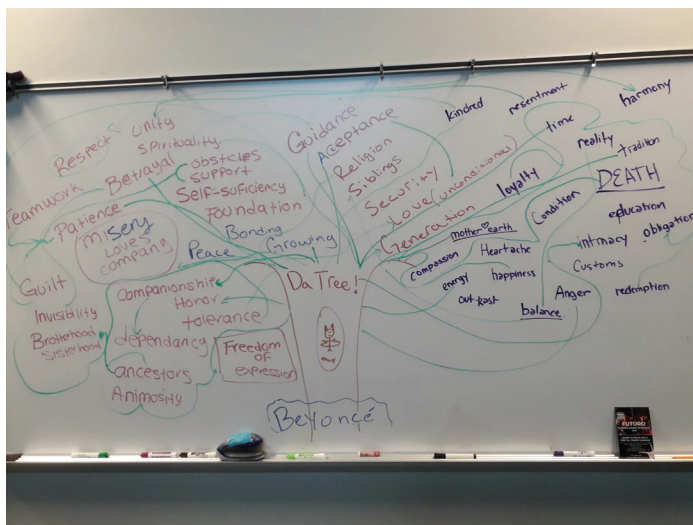 Respect
Unity
Spirituality
Teamwork
Betrayal
obstacles
support
Self-suficiency
Foundation
Patience
misery
loves
company
Bonding
Peace
Growing
Guilt
Invisibility
Brotherhood
Sisterhood
Companionship
Honor
tolerance
dependancy
ancestors
Animosity
Freedom
of
expression
Guidance
Acceptance
Religion
Siblings
Security
Love (unconditional)
Generation
Da Tree!
Beyoncé
kindred
resentment
harmony
time
reality
tradition
loyalty
DEATH
Condition
education
mother earth
intimacy
obligation
compassion
Heartache
Customs
energy
happiness
out kast
Anger
redemption
balance
FUTURO